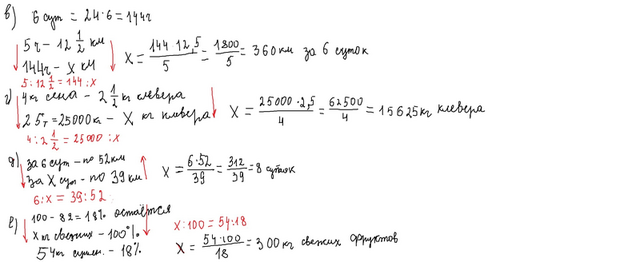 в) 6 сут = 24·6 = 144ч
5ч – 12 1/2 км
144ч – x км
x = 144 12,5 / 5 = 1800 / 5 = 360 км за 6 суток
5 : 12 1/2 = 144 : x
г) 4кг сена – 2 1/2 кг клевера
25т = 25000кг – x кг клевера
x = 25000·2,5 / 4 = 62500 / 4 = 15625кг клевера
4 : 2 1/2 = 25000 : x
д) за 6 сут – по 52км
за x сут – по 39 км
x = 6·52 / 39 = 312 / 39 = 8 суток
6:x = 39:52
е) 100 – 82 = 18% остаётся
x кг свежих – 100%
54кг сушен. – 18%
x:100 = 54:18
x = 54·100 / 18 = 300 кг свежих фруктов